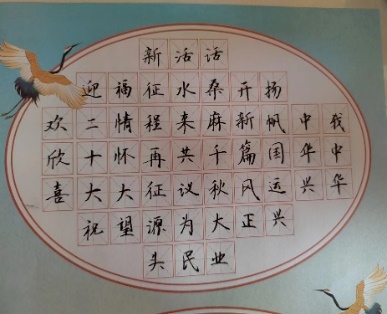 欢欣喜
迎二十大祝
福情怀大望
新征程再征源头
活水来共议为民
话桑麻千秋大业
开新篇风正
扬帆国运兴
中华兴
我中华